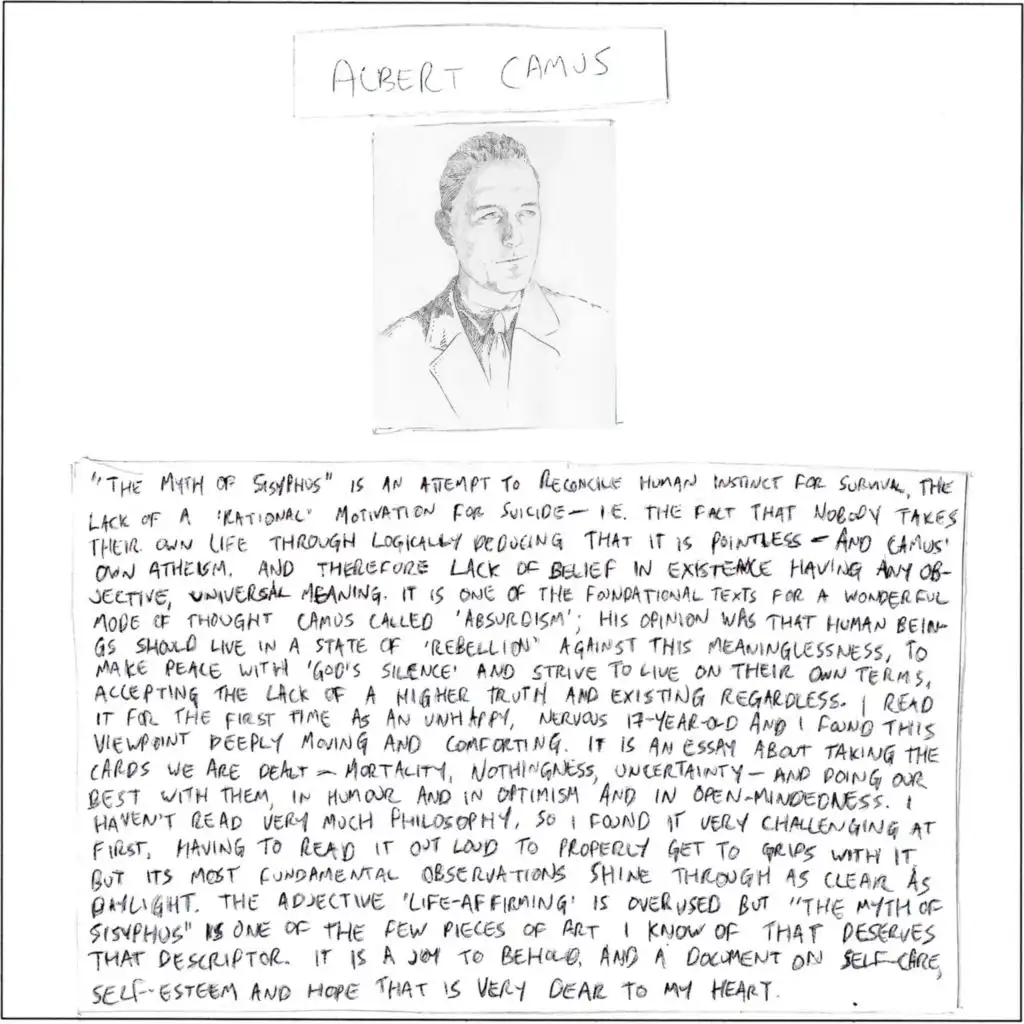 ALBERT CAMUS
"THE MYTH OF SISYPHUS" IS AN ATTEMPT TO RECONCILE HUMAN INSTINCT FOR SURVIVAL, THE
LACK OF A 'RATIONAL' MOTIVATION FOR SUICIDE – I.E. THE FACT THAT NOBODY TAKES
THEIR OWN LIFE THROUGH LOGICALLY DEDUCING THAT IT IS POINTLESS – AND CAMUS'
OWN ATHEISM, AND THEREFORE LACK OF BELIEF IN EXISTENCE HAVING ANY OB-
JECTIVE, UNIVERSAL MEANING. IT IS ONE OF THE FOUNDATIONAL TEXTS FOR A WONDERFUL
MODE OF THOUGHT CAMUS CALLED 'ABSURDISM'; HIS OPINION WAS THAT HUMAN BEIN-
GS SHOULD LIVE IN A STATE OF 'REBELLION' AGAINST THIS MEANINGLESSNESS, TO
MAKE PEACE WITH 'GOD'S SILENCE' AND STRIVE TO LIVE ON THEIR OWN TERMS,
ACCEPTING THE LACK OF A HIGHER TRUTH AND EXISTING REGARDLESS. I READ
IT FOR THE FIRST TIME AS AN UNHAPPY, NERVOUS 17-YEAR-OLD AND I FOUND THIS
VIEWPOINT DEEPLY MOVING AND COMFORTING. IT IS AN ESSAY ABOUT TAKING THE
CARDS WE ARE DEALT – MORTALITY, NOTHINGNESS, UNCERTAINTY – AND DOING OUR
BEST WITH THEM, IN HUMOUR AND IN OPTIMISM AND IN OPEN-MINDEDNESS. I
HAVEN'T READ VERY MUCH PHILOSOPHY, SO I FOUND IT VERY CHALLENGING AT
FIRST, HAVING TO READ IT OUT LOUD TO PROPERLY GET TO GRIPS WITH IT
BUT ITS MOST FUNDAMENTAL OBSERVATIONS SHINE THROUGH AS CLEAR AS
DAYLIGHT. THE ADJECTIVE 'LIFE-AFFIRMING' IS OVERUSED BUT "THE MYTH OF
SISYPHUS" IS ONE OF THE FEW PIECES OF ART I KNOW OF THAT DESERVES
THAT DESCRIPTOR. IT IS A JOY TO BEHOLD, AND A DOCUMENT ON SELF-CARE,
SELF-ESTEEM AND HOPE THAT IS VERY DEAR TO MY HEART.